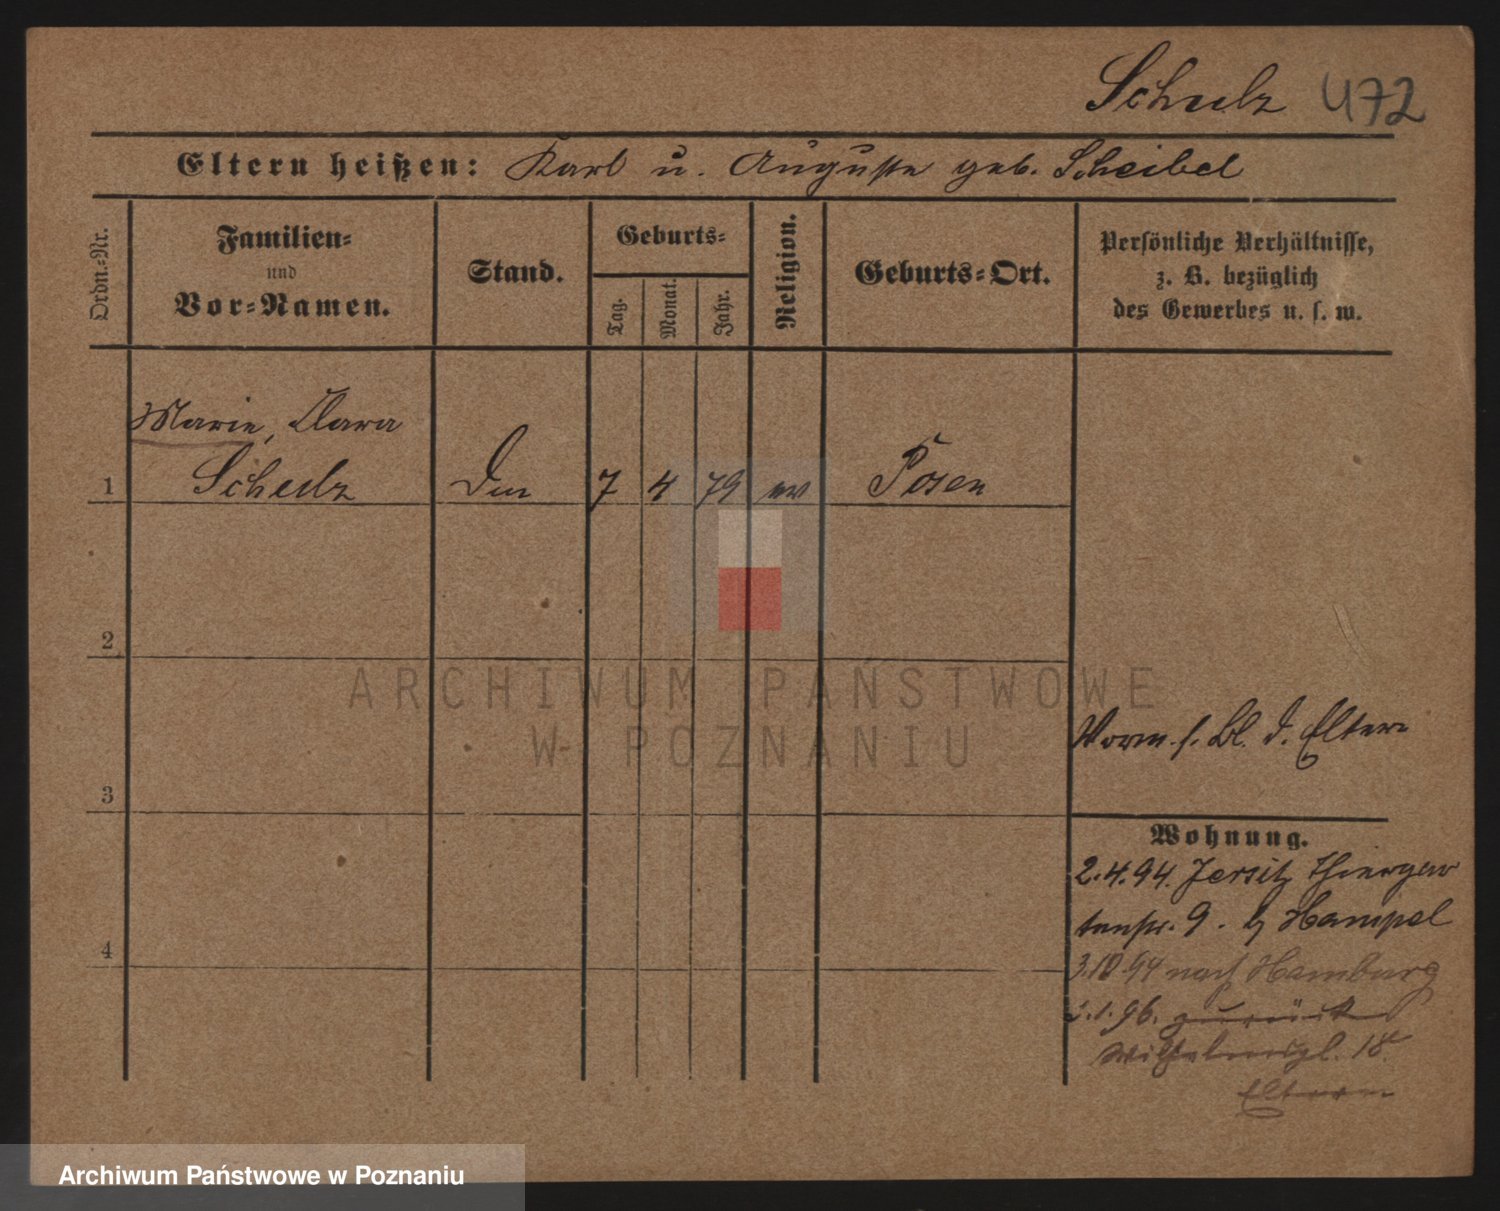 Schulz 472
Eltern heißen: Karl u. Auguste geb. Scheibel
Ordn.-Nr.
Familien-
und
Vor-Namen.
Stand.
Geburts-
Tag.
Monat.
Jahr.
Religion.
Geburts-Ort.
Persönliche Verhältnisse,
z. B. bezüglich
des Gewerbes u. s. w.
Marie, Clara
1 Schulz 7 4 79 ev Posen
2
ARCHIWUM PAŃSTWOWE
W POZNANIU
Vorm. s. Bl. d. Eltern
3
Wohnung.
2.4.94. Jersitz Thiergar
tenstr. 9. b Hampel
4
3.10 94 nach Hamburg
1.96. zurück
Wilhelmspl. 18
Eltern
Archiwum Państwowe w Poznaniu